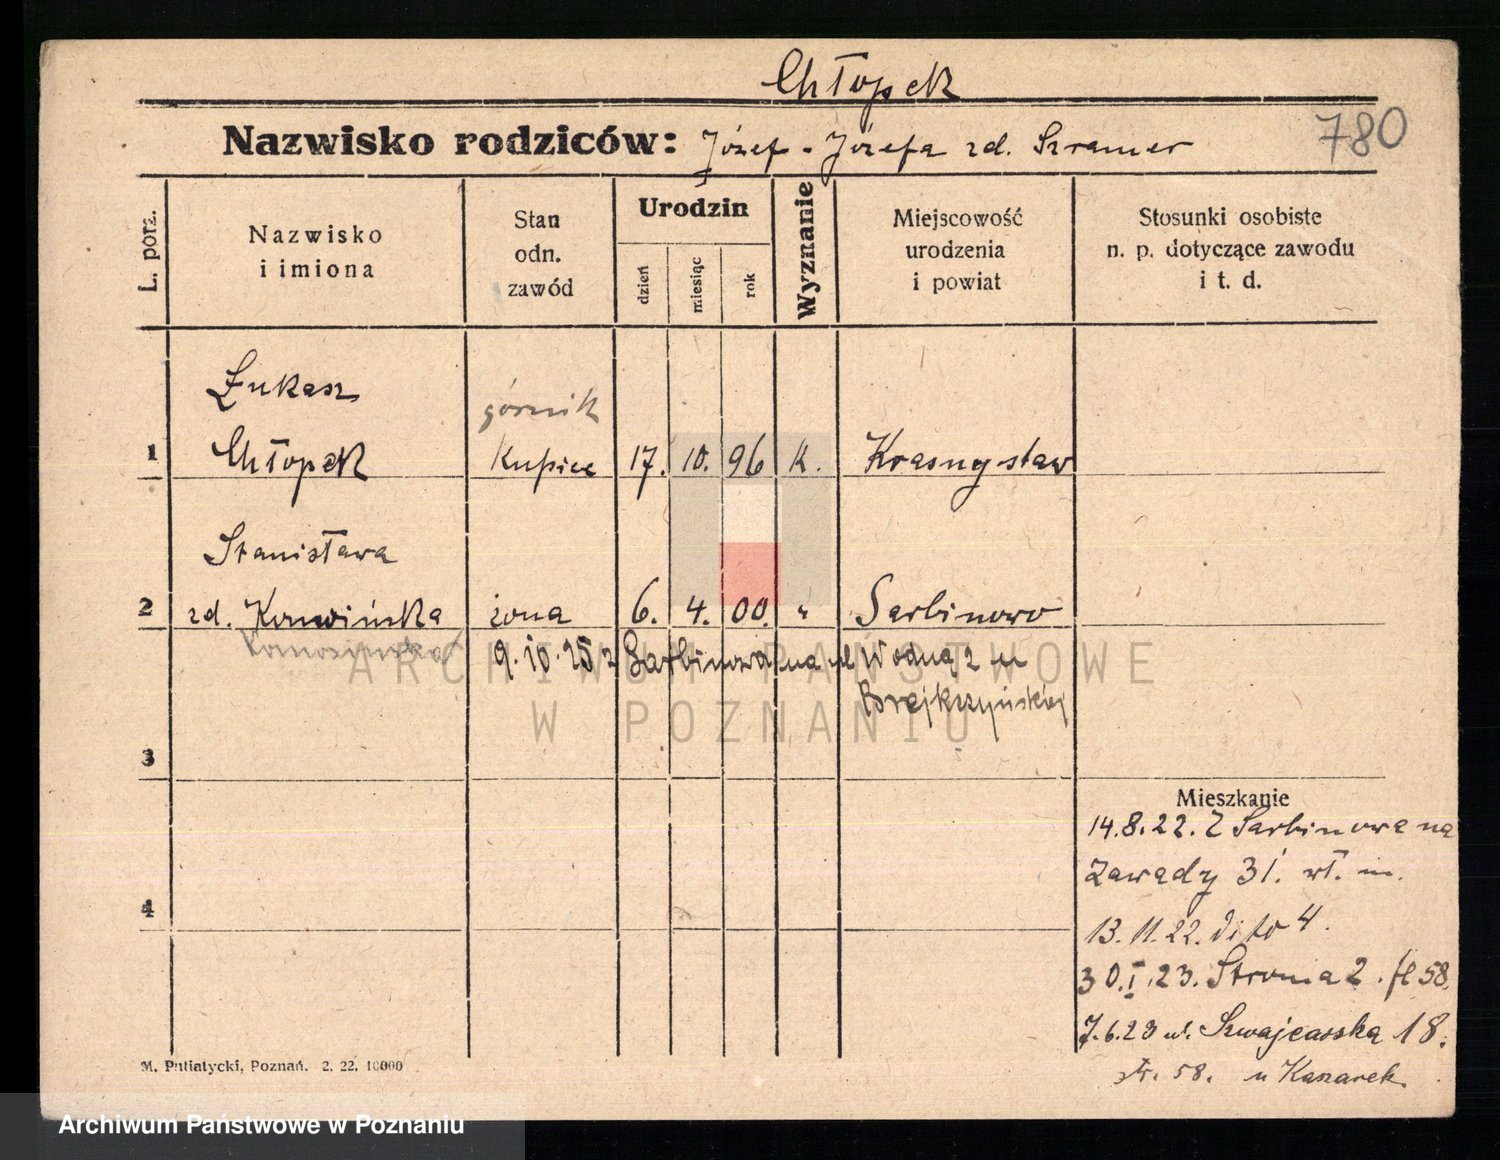 Chłopek
780
Nazwisko rodziców: Józef - Józefa zd. Szramer
L. porz.
Nazwisko i imiona
Stan odn. zawód
Urodzin
dzień
miesiąc
rok
Wyznanie
Miejscowość urodzenia i powiat
Stosunki osobiste n. p. dotyczące zawodu i t. d.
Łukasz
górnik
1 Chłopek Kupiec 17. 10. 96 k. Krasnystaw
Stanisława
2 zd. Konwińska żona 6. 4. 00. " Sarbinowo
9.10.25 z Sarbinowa na ul Wodną 2 u
Brejkszyńskiej
ARCHIWUM PAŃSTWOWE
W POZNANIU
3
Mieszkanie
14.8.22. Z Sarbinowa na
Zawady 31. wł. m.
4
13.11.22. dito 4.
30.I.23. Stroma 2. fl 58.
7.6.23 ul. Szwajcarska 18.
str. 58. u Kaszarek
M. Putiatycki, Poznań. 2. 22. 10000
Archiwum Państwowe w Poznaniu